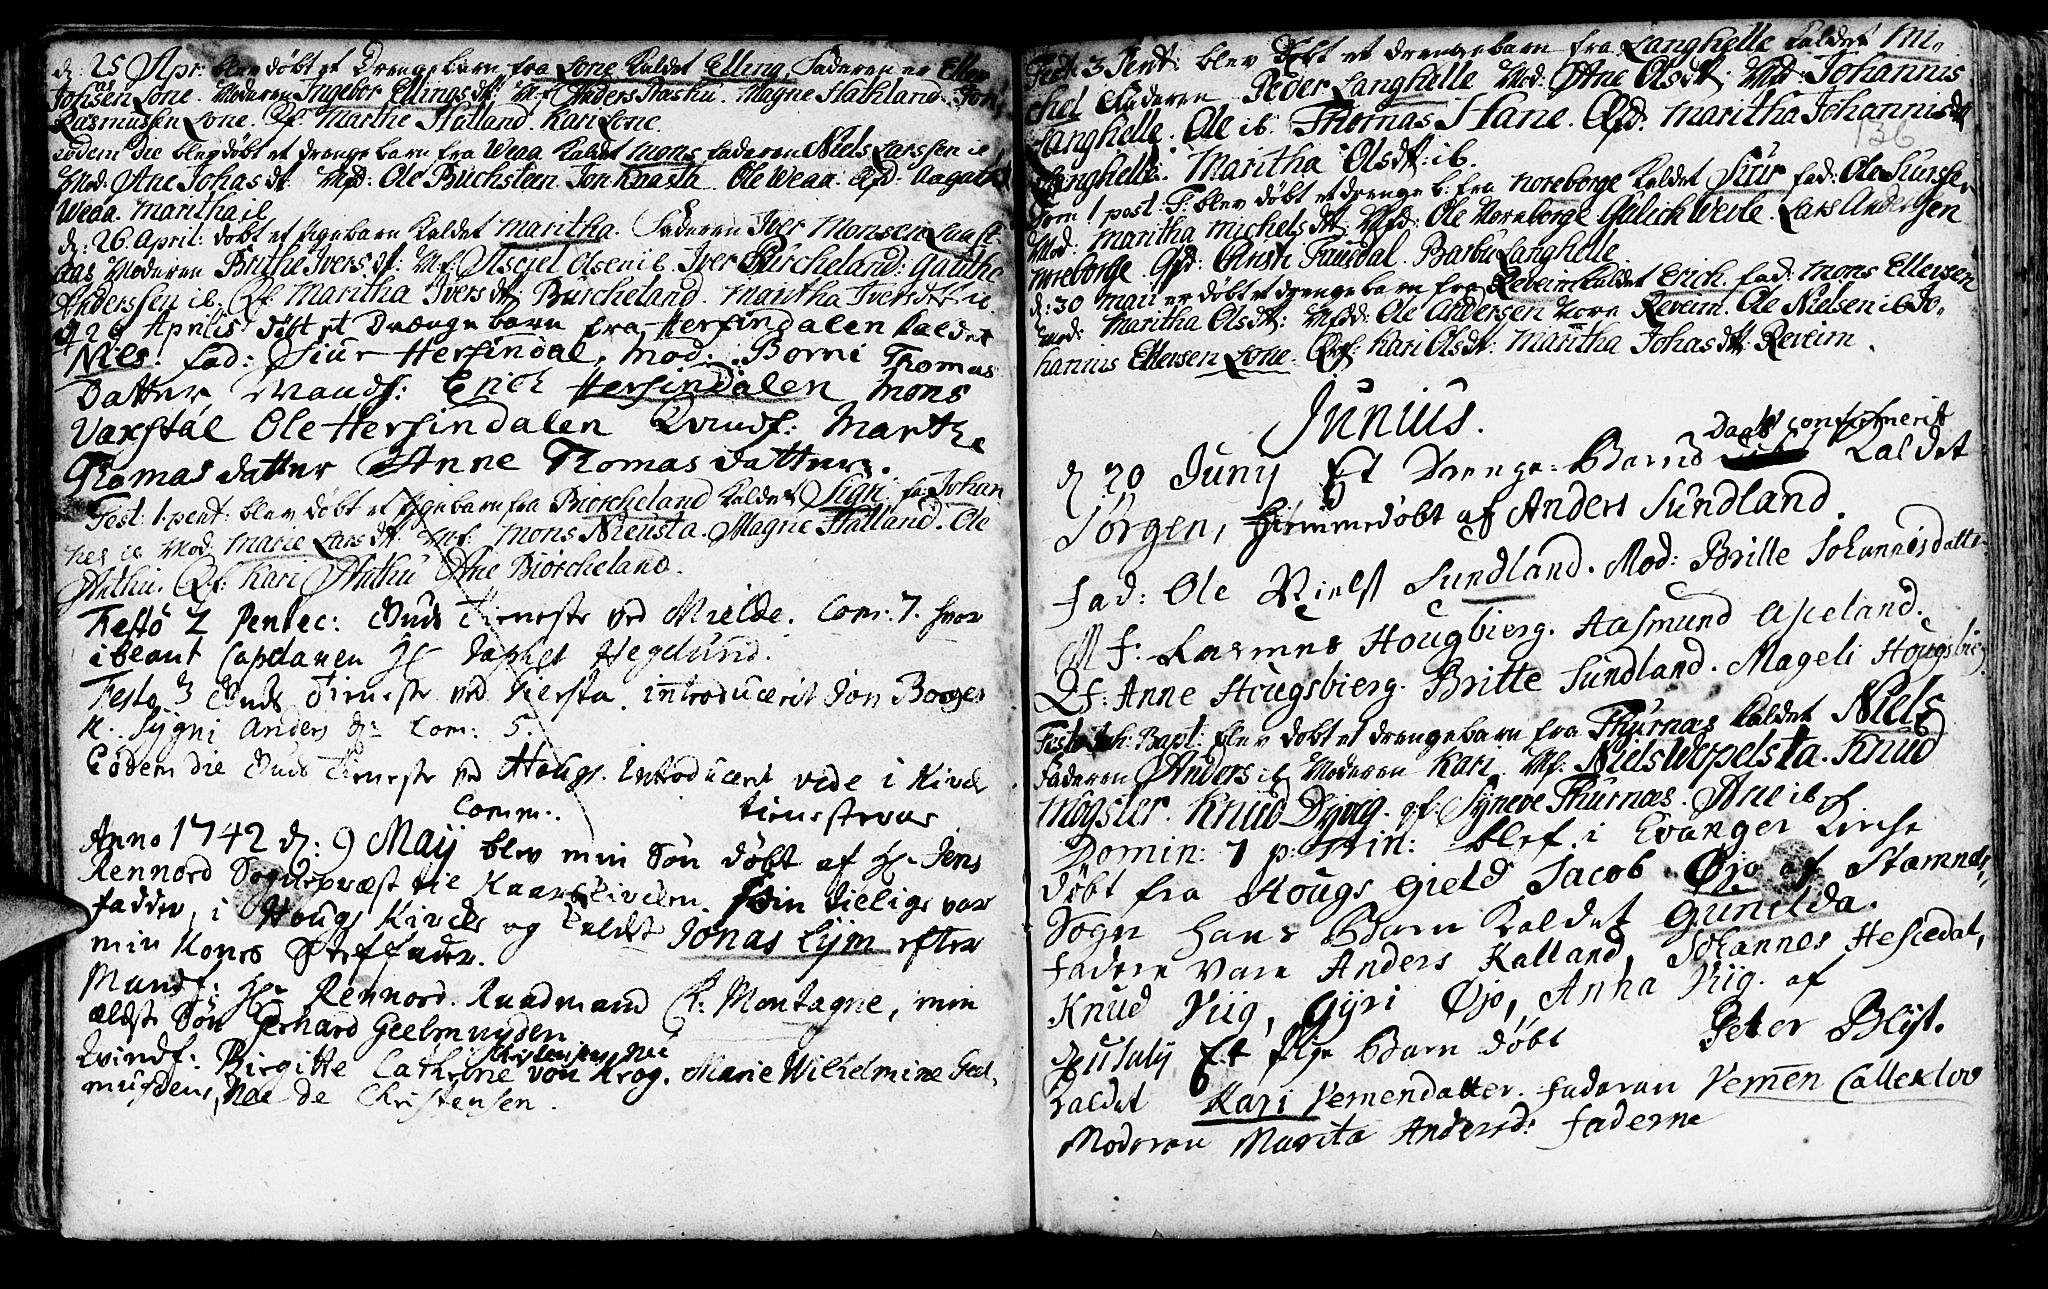 d: 25 Apr: blev døbt et Drengebarn fra Lone Kaldet Elling, Faderen er Eller
Johsen Lone. Moderen Ingebor Ellings dt: Mf: Anders Nashu. Magne Hathland. Jon
Rasmussen Lone. Qf: Marthe Hatland. Kari Lone.
Eodem die blev døbt et drengebarn fra Weaa Kaldet Mons faderen Niels Larssen ib
Mod: Ane Johas dt: Mfd: Ole Buchsteen Jon Raasta Ole Weaa. Qfd: Aagate
Weaa. Maritha ib
d: 26 April: døbt et Pigebarn Kaldet Maritha. Faderen Iver Monsen
Moderen Brithe Ivers dt: Mf: Aschel Olsen ib. Iver Burcheland: Gauthe
Anderssen ib: Qf: Maritha Ivers dt: Burcheland. Maritha Iversdt: ib
d 29 Aprilis døbt et Drænge barn fra Hersindalen Kaldet
Niels. fad: Siur Hersindal, Mod: Borni Thomas
Datter, Mandf: Erich Hersindalen Mons
Vaxstal Ole Hersindalen Qvindf: Marthe
Thomas datter Anne Thomas datter.
Fest: 1. pent: blev døbt et Pigebarn fra Biorcheland Kaldet Sigri. fa: Johan
nes ib Mod: Marie Lars dt: Mf: Mons Nieusta. Magne Hatland. Ole
Anthu. Qf: Kari Anthu Ane Biorcheland.
Festo 2 Pentec: Guds Tieneste ved Mielde. Com: 7. hvor
ibeant Capelanen Hr Japhet Hegelund.
Festo 3 Guds Tieneste ved Hersta. introducerit Jon Borges
K. Sygni Anders dr Com: 5.
Eodem die Guds Tieneste ved Hougs. Introducerit vede i Kirche
Comm: tienestevar
Anno 1742 d: 9 Maij blev min Søn døbt af Hr Jens
Rennord Sognepræst til Kaars Kirchen. Som tillige var
fadder, i Hougs Kirche og Kaldet Jonas Lym efter
min Kones Steffader.
Mandf: Hr Rennord. Raadmand Montagne, min
ældste Søn Gerhard Geelmuyden
Christensen née
Kvindf: Birgitte Cathrine von Krog. Marie Wilhelmine Geel,
muydens, Née de Christensen.
Fest: 3 Pent: blev døbt et drengebarn fra Langhelle Kaldet Mi,
chel Faderen Peder Langhelle Mod: Ane Olsdt: Mfd: Johannis
Langhelle. Ole ib. Thomas Hane. Qfd: Maritha Johannisdt
136
Langhelle. Maritha Olsdt: ib.
Dom 1 post: T: blev døbt et drenge b: fra Noreborge Kaldet Siur fad: Ole Siurssen
Mod: Maritha Michels dt: Mfd: Ole Noreborge Gulich Wevle. Lars Andersen
Noreborge Qfd: Christi Fuusdal. Barbu Langhelle.
d: 30 Maii er døbt et drengebarn fra Reveim Kaldet Erich. fad: Mons Ellersen
mod: Maritha Olsdt: Mfdd: Ole Andersen Nore Reveim. Ole Nielsen ib Jo,
hannis Ellersen Lone. Qvf: Kari Olsdt: Maritha Johas dt: Reveim.
Junius.
Daab confirmerit
d 20 Juny Et Drenge-Barns Kaldet
Jørgen, hiemmedøbt af Anders Sundland.
fad: Ole Nielss Sundland. Mod: Britte Johannisdatte
Mf: Rasmus Hougbierg. Aasmund Apeland.
Qf: Anne Hougsbierg. Britte Sundland. Mageli Hougsbierg.
Festo Joh: Bapt: blev døbt et drengebarn fra Thurnæs Kaldet Niels
Faderen Anders ib Moderen Kari. Mf: Niels Wepelsta. Knud
Møgster. Knud Dyvig. qf: Syneve Thurnæs. Ane ib
Domin: 7 p: Trin: blef i Evanger Kirche
døbt fra Hougs gield Jacob Øjo af Stamnes,
Sogn hans Barn Kaldet Gunilda.
Faddere vare Anders Kalland, Johannes Hesiedal,
Knud Viig, Gyri Øjo, Anna Viig. af
Peter Blijt.
d 11 July Et Pige Barn døbt
Kaldet Kari Vemendatter. faderen Vemen Callekloo
Moderen Marita Andersd: faderne